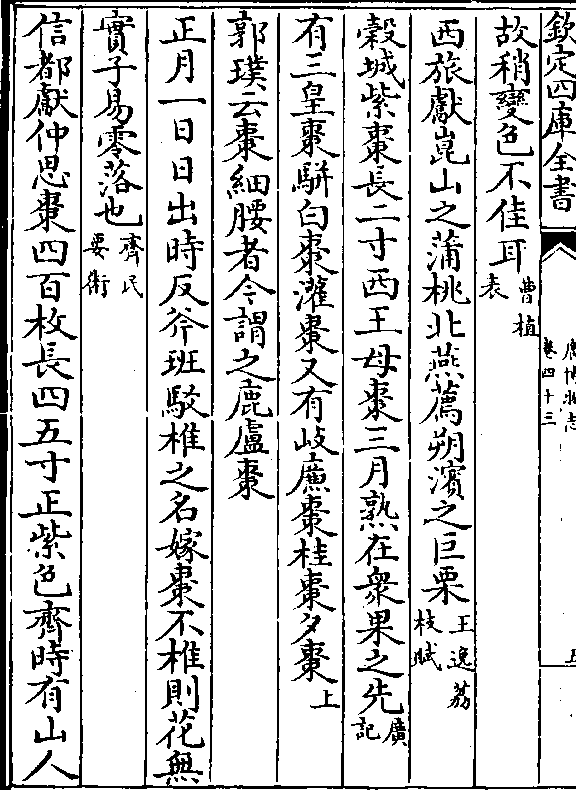 欽定四庫全書
廣博物志
卷四十三
故稍變色不佳耳曹植表
西旅獻崑山之蒲桃北燕薦朔濱之巨栗王逸荔枝賦
穀城紫棗長二寸西王母棗三月熟在衆果之先廣記
有三皇棗駢白棗灌棗又有岐廉棗桂棗夕棗上
郭璞云棗細腰者今謂之鹿盧棗
正月一日日出時反斧班駁椎之名嫁棗不椎則花無
實子易零落也齊民要術
信都獻仲思棗四百枚長四五寸正紫色齊時有山人